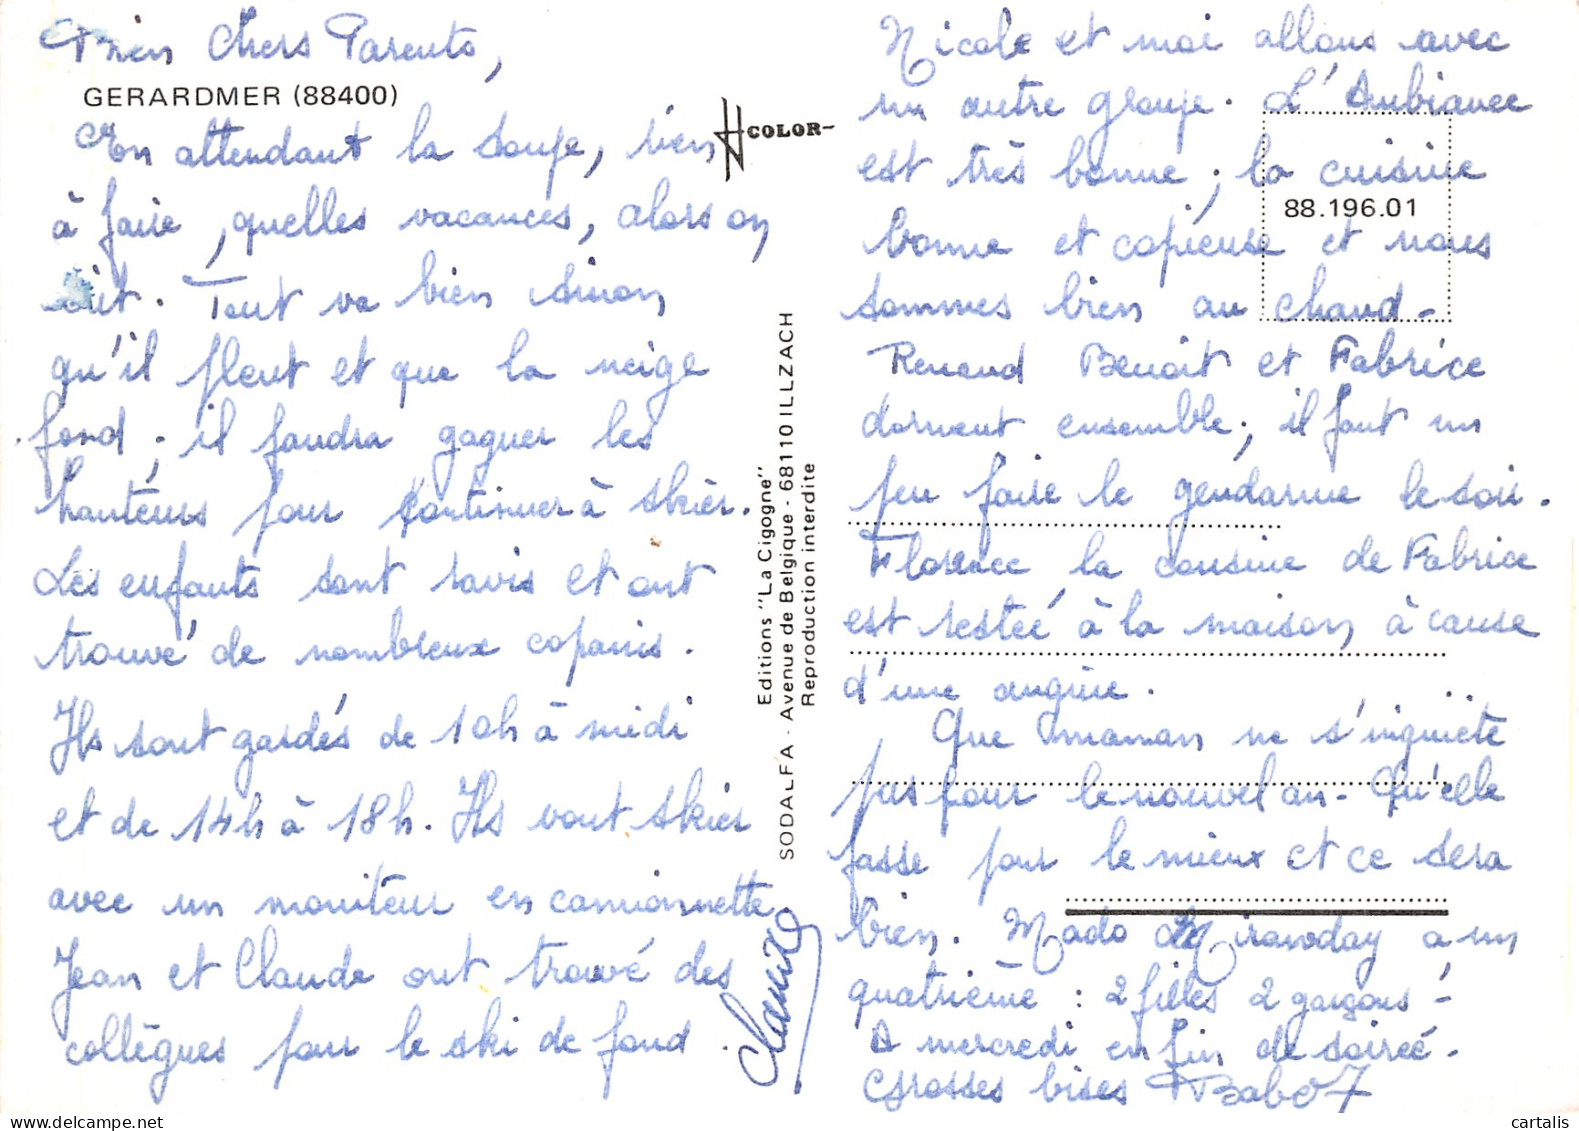 Bien Chers Parents,
GERARDMER (88400)
En attendant la soupe, rien
à faire, quelles vacances, alors on
écrit. Tout va bien sinon
qu'il pleut et que la neige
fond ; il faudra gagner les
hauteurs pour continuer à skier.
Les enfants sont ravis et ont
trouvé de nombreux copains.
Ils sont gardés de 10h à midi
et de 14h à 18h. Ils vont skier
avec un moniteur en camionnette
Jean et Claude ont trouvé des
collègues pour le ski de fond.
Claude
COLOR
Editions "La Cigogne"
SODALFA - Avenue de Belgique - 68110 ILLZACH
Reproduction interdite
Nicole et moi allons avec
un autre groupe. L'Ambiance
est très bonne ; la cuisine
88.196.01
bonne et copieuse et nous
sommes bien au chaud -
Renaud Benoit et Fabrice
dorment ensemble ; il faut un
peu faire le gendarme le soir.
Florence la cousine de Fabrice
est restée à la maison à cause
d'une angine.
Que maman ne s'inquiète
pas pour le nouvel an - Qu'elle
fasse pour le mieux et ce sera
bien. Mado Mirawday a un
quatrième : 2 filles 2 garçons -
A mercredi en fin de soirée.
Grosses bises Babo
cartalis